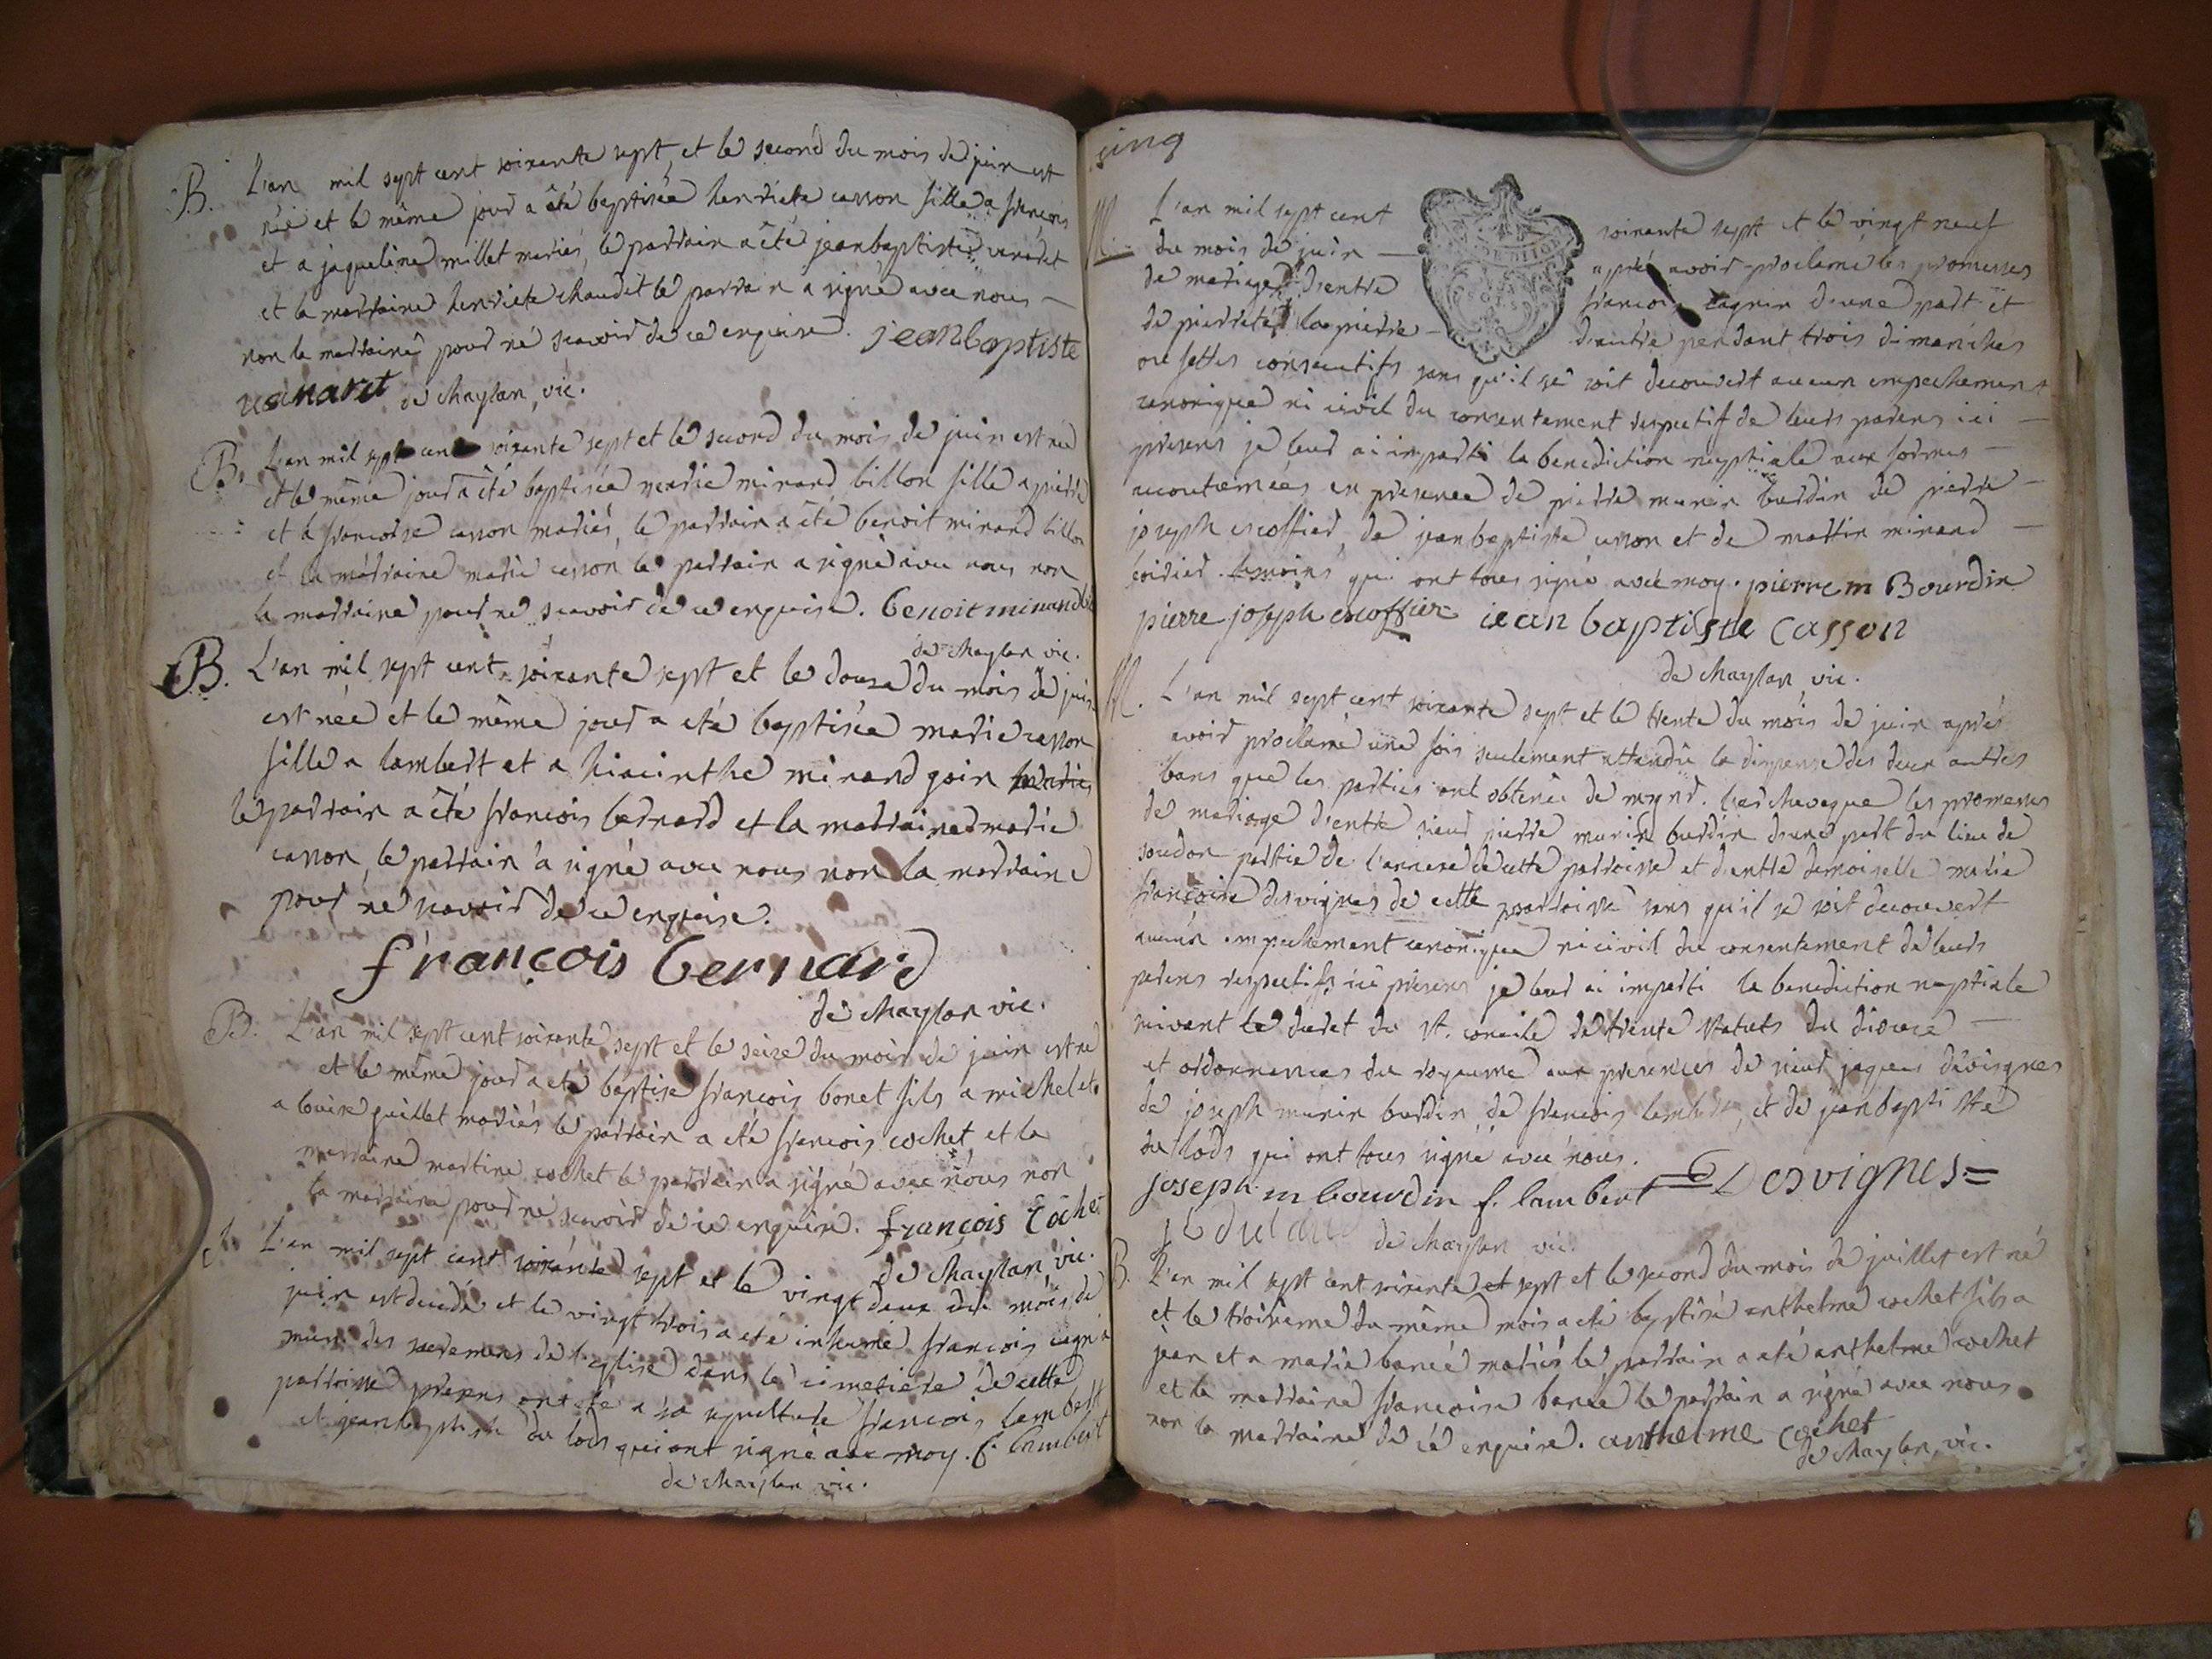 B. L'an mil sept cent soixante sept, et le second du mois de juin est
née et le même jour a été baptisée henriete casson fille a françois
et a jaqueline millet mariés, le parrain a été jeanbaptiste
et la marraine henriete chaudet le parrain a signé avec nous
non la marraine pour ne scavoir de ce enquise. jeanbaptiste
de chaylan, vic.
B. L'an mil sept cent soixante sept et le second du mois de juin est née
et le même jour a été baptisée marie minand billon fille a pierre
et a françoise casson mariés, le parrain a été benoit minand billon
et la marraine marie casson le parrain a signé avec nous non
la marraine pour ne scavoir de ce enquise. benoit minand
de chaylan vic.
B. L'an mil sept cent soixante sept et le douze du mois de juin
est née et le même jour a été baptisée marie casson
fille a lambert et a hiacinthe minand goin mariés
le parrain a été françois bernard et la marraine marie
casson, le parrain a signé avec nous non la marraine
pour ne scavoir de ce enquise.
françois bernard
de chaylan vic.
B. L'an mil sept cent soixante sept et le seize du mois de juin est né
et le même jour a été baptisé françois bonet fils a michel et
a louise guillet mariés le parrain a été françois cochet et la
marraine martine cochet le parrain a signé avec nous non
la marraine pour ne scavoir de ce enquise. françois Cochet
de chaylan vic.
L'an mil sept cent soixante sept et le vingt deux du mois de
juin est decedé et le vingt trois a été inhumé françois cagnin
muni des sacremens de l'eglise dans le cimetiere de cette
parroisse presens ont été a sa sepulture françois lambert
et jeanbaptiste du lods qui ont signé avec moy. f. lambert
de chaylan vic.
cinq
M. L'an mil sept cent soixante sept et le vingt neuf
du mois de juin après avoir proclamé les promesses
de mariage d'entre françois cagnin d'une part et
de pierrete lapierre d'autre pendant trois dimanches
ou fettes consecutifs sans qu'il se soit decouvert aucun empechement
canonique ni civil du consentement respectif de leurs parens ici
presens je leur ai imparti la benediction nuptiale aux formes
acoutumées en presence de pierre munin burdin de pierre
joseph escoffier, de jeanbaptiste casson et de martin minand
temoins qui ont tous signé avec moy. pierre m Bourdin
pierre joseph escoffier jean baptiste casson
de chaylan vic.
M. L'an mil sept cent soixante sept et le trente du mois de juin après
avoir proclamé une fois seulement attendu la dispense des deux autres
bans que les parties ont obtenüe de mgnr. l'archeveque les promesses
de mariage d'entre sieur pierre munin burdin d'une part du lieu de
soudon partie de l'annexe de cette parroisse et d'entre demoiselle marie
françoise desvignes de cette parroisse sans qu'il se soit decouvert
aucun empechement canonique ni civil du consentement de leurs
parens respectifs ici presens je leur ai imparti la benediction nuptiale
suivant le decret du st. concile de trente statuts du diocese
et ordonnances du royaume aux presences de sieur jaques desvignes
de joseph munin burdin de françois lambert, et de jeanbaptiste
du lods qui ont tous signé avec nous.
joseph m bourdin f. lambert Desvignes
de chaylan vic.
B. L'an mil sept cent soixante et sept et le second du mois de juillet est né
et le troisieme du même mois a été baptisé anthelme cochet fils a
jean et a marie bancé mariés le parrain a été anthelme cochet
et la marraine françoise bancé le parrain a signé avec nous
non la marraine de ce enquise. anthelme Cochet
de chaylan, vic.